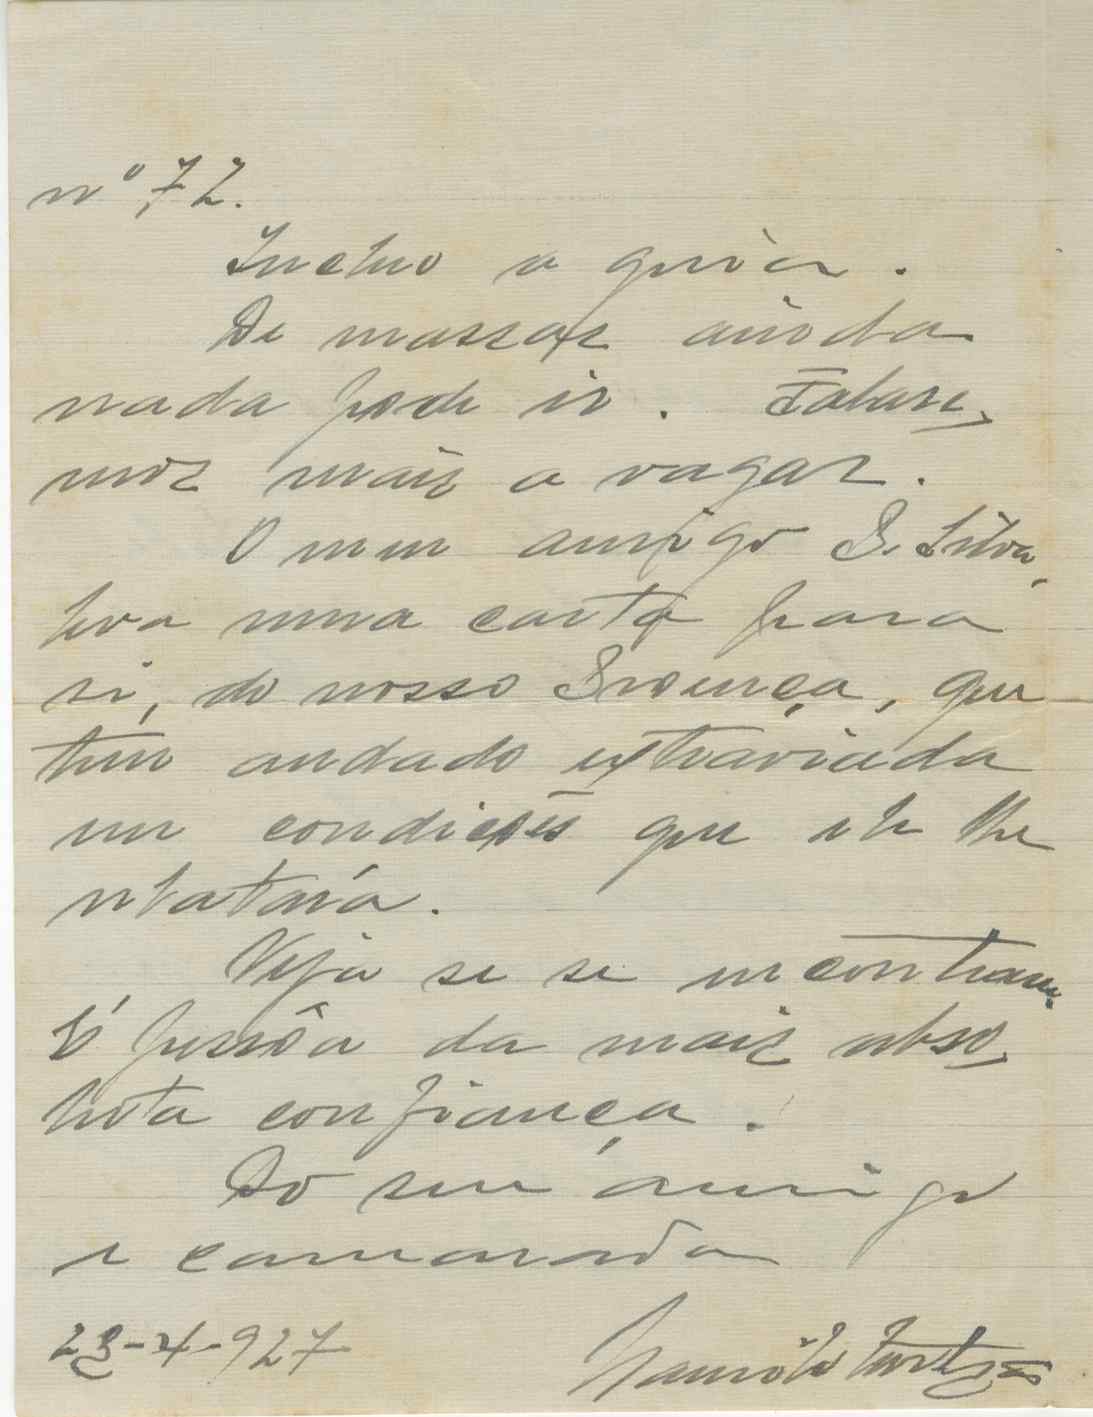 nº 72.
Incluo a guia.
De massas ainda
nada pode ir. Falare-
mos mais a vagar.
O meu amigo P. Silva,
leva uma carta para
si, do nosso Proença, que
tem andado extraviada
em condições que ele lhe
relatará.
Veja se se encontram.
É pessôa da mais abso-
luta confiança.
Do seu amigo
e camarada
23-4-927